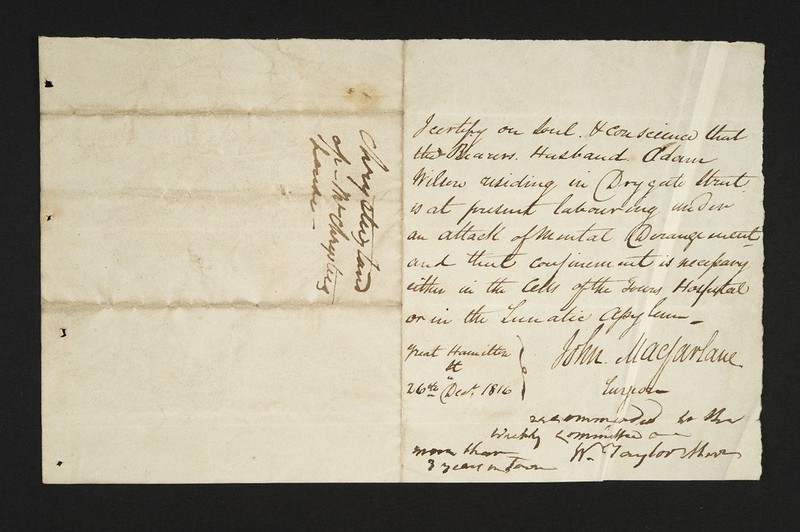 Chrystys Land
opn Mr Chrystys
house –
I certify on Soul. & conscience that
the Bearers. Husband. Adam
Wilson residing in Drygate Street
is at present labouring under
an attack of Mental Derangement
and that confinement is necessary
either in the Cells of the Towns Hospital
or in the Lunatic Assylum –
Great Hamilton
St
26th Decr. 1816
John. Macfarlane
Surgeon
recommended to the
weekly committee
more than
3 years in Town
Wm Taylor